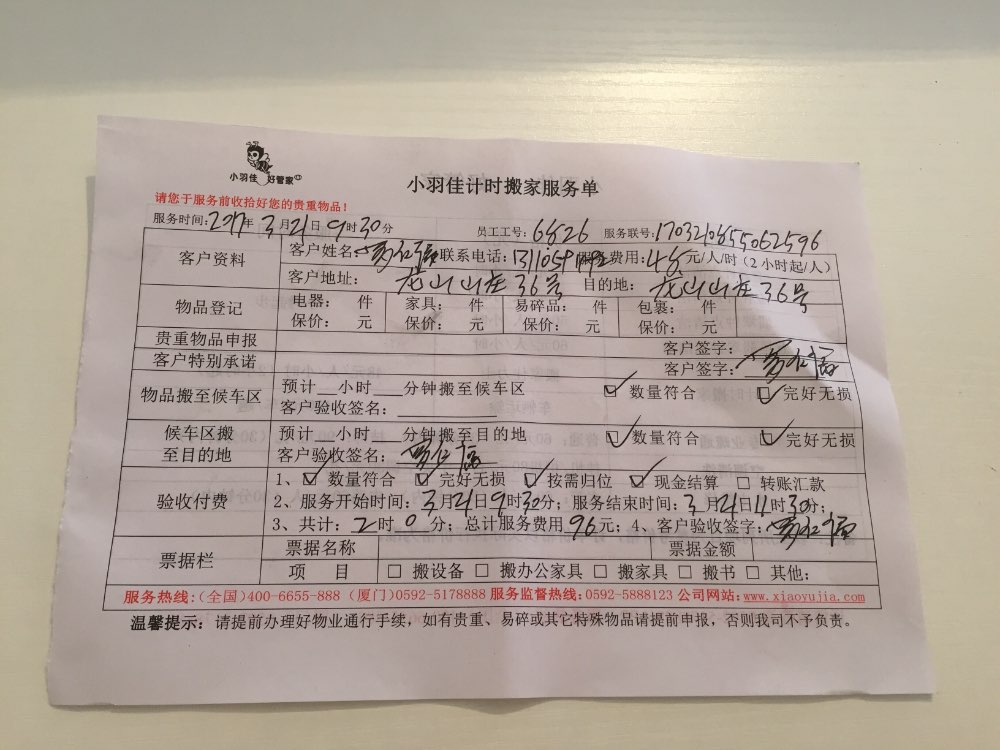 小羽佳 好管家
小羽佳计时搬家服务单
请您于服务前收拾好您的贵重物品！
服务时间:2017年3月21日9时30分 员工工号:6826 服务联号:
客户资料 客户姓名: 联系电话: 费用:48元/人/时（2小时起/人）
客户地址: 龙山山庄36号 目的地: 龙山山庄36号
物品登记 电器: 件 家具: 件 易碎品: 件 包裹: 件
保价: 元 保价: 元 保价: 元 保价: 元
贵重物品申报 客户签字:
客户特别承诺 客户签字:
物品搬至候车区 预计___小时___分钟搬至候车区 ☑ 数量符合 ☑ 完好无损
客户验收签名:
候车区搬至目的地 预计___小时___分钟搬至目的地 ☑ 数量符合 ☑ 完好无损
客户验收签名:
验收付费 1、☑ 数量符合 ☑ 完好无损 ☑ 按需归位 ☑ 现金结算 □ 转账汇款
2、服务开始时间: 3月21日9时30分; 服务结束时间: 3月21日11时30分;
3、共计: 2时0分; 总计服务费用96元; 4、客户验收签字:
票据栏 票据名称 票据金额
项 目 □ 搬设备 □ 搬办公家具 □ 搬家具 □ 搬书 □ 其他:
服务热线:(全国)400-6655-888 (厦门)0592-5178888 服务监督热线:0592-5888123 公司网站:www.xiaoyujia.com
温馨提示: 请提前办理好物业通行手续，如有贵重、易碎或其它特殊物品请提前申报，否则我司不予负责。